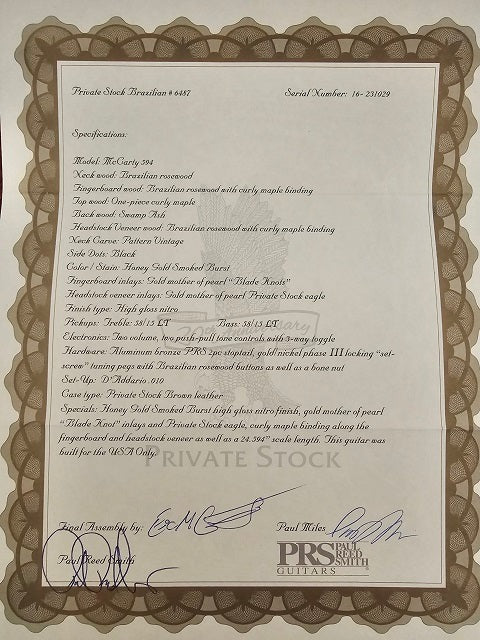 Private Stock Brazilian # 6487 Serial Number: 16- 231029
Specifications:
Model: McCarty 594
Neck wood: Brazilian rosewood
Fingerboard wood: Brazilian rosewood with curly maple binding
Top wood: One-piece curly maple
Back wood: Swamp Ash
Headstock Veneer wood: Brazilian rosewood with curly maple binding
Neck Carve: Pattern Vintage
Side Dots: Black
Color / Stain: Honey Gold Smoked Burst
Fingerboard inlays: Gold mother of pearl "Blade Knots"
Headstock veneer inlays: Gold mother of pearl Private Stock eagle
Finish type: High gloss nitro
Pickups: Treble: 58/15 LT Bass: 58/15 LT
20th Anniversary
Electronics: Two volume, two push-pull tone controls with 3-way toggle
Hardware: Aluminum bronze PRS 2pc stoptail, gold/nickel phase III locking "set-
screw" tuning pegs with Brazilian rosewood buttons as well as a bone nut
Set-Up: D'Addario .010
Case type: Private Stock Brown leather
Specials: Honey Gold Smoked Burst high gloss nitro finish, gold mother of pearl
"Blade Knot" inlays and Private Stock eagle, curly maple binding along the
fingerboard and headstock veneer as well as a 24.594" scale length. This guitar was
built for the USA Only.
PRIVATE STOCK
Final Assembly by: Paul Miles
Paul Reed Smith
PRS PAUL REED SMITH
GUITARS